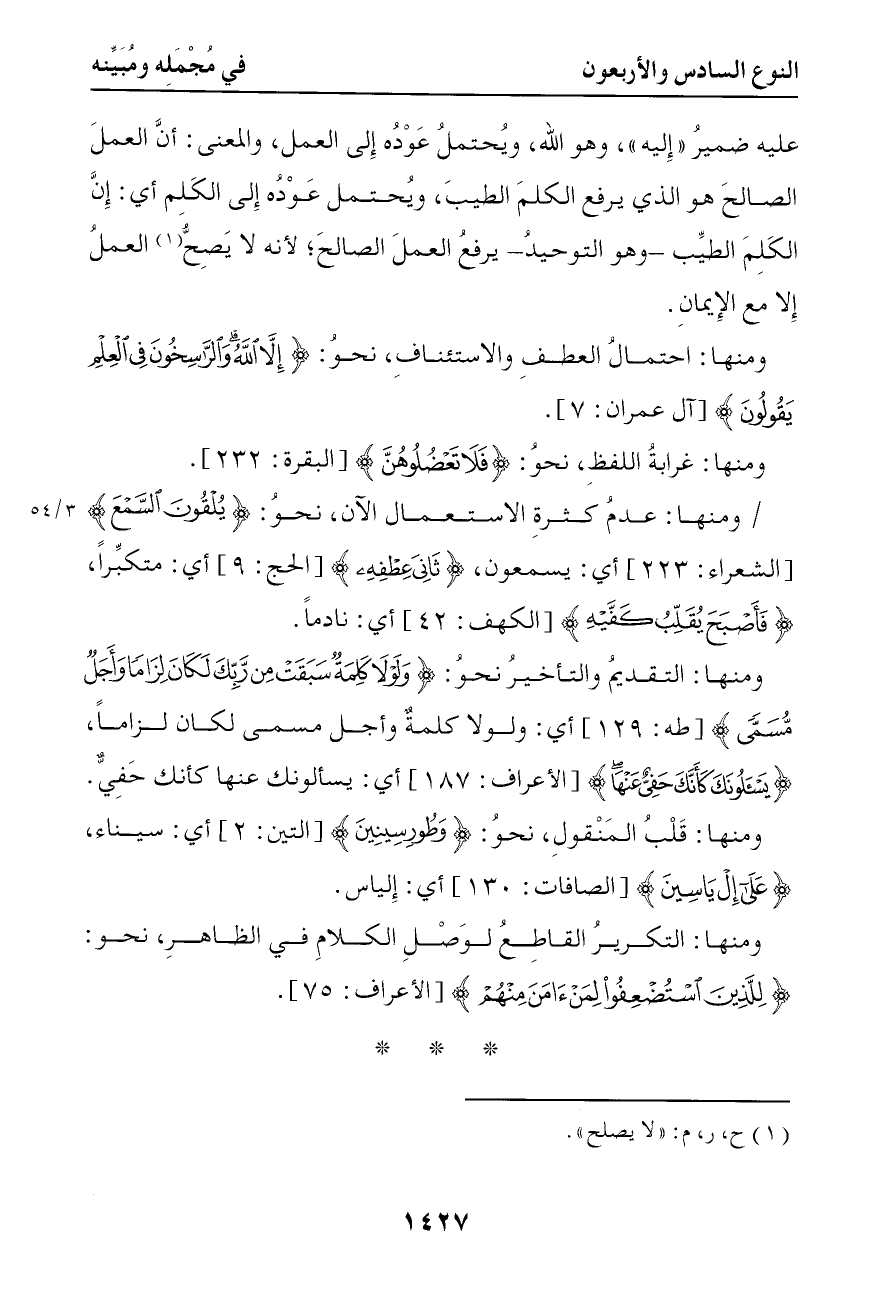 النوع السادس والأربعون في مُجْمَلِه ومُبَيَّنِه
عليه ضميرُ «إليه»، وهو الله، ويُحتملُ عَوْدُه إلى العمل، والمعنى: أنَّ العملَ
الصالحَ هو الذي يرفع الكلمَ الطيبَ، ويُحتمل عَوْدُه إلى الكَلِم أي: إنَّ
الكَلِمَ الطيِّب –وهو التوحيدُ– يرفعُ العملَ الصالحَ؛ لأنه لا يَصِحُّ(١) العملُ
إلا مع الإيمانِ.
ومنها: احتمالُ العطفِ والاستئنافِ، نحوُ: ﴿إِلَّا ٱللَّهُ ۗ وَٱلرَّٰسِخُونَ فِى ٱلْعِلْمِ
يَقُولُونَ﴾ [آل عمران: ٧].
ومنها: غرابةُ اللفظِ، نحوُ: ﴿فَلَا تَعْضُلُوهُنَّ﴾ [البقرة: ٢٣٢].
/ ومنها: عدمُ كثرةِ الاستعمال الآن، نحوُ: ﴿يُلْقُونَ ٱلسَّمْعَ﴾ ٥٤/٣
[الشعراء: ٢٢٣] أي: يسمعون، ﴿ثَانِىَ عِطْفِهِۦ﴾ [الحج: ٩] أي: متكبِّراً،
﴿فَأَصْبَحَ يُقَلِّبُ كَفَّيْهِ﴾ [الكهف: ٤٢] أي: نادماً.
ومنها: التقديمُ والتأخيرُ نحوُ: ﴿وَلَوْلَا كَلِمَةٌ سَبَقَتْ مِن رَّبِّكَ لَكَانَ لِزَامًا وَأَجَلٌ
مُّسَمًّى﴾ [طه: ١٢٩] أي: ولولا كلمةٌ وأجل مسمى لكان لزاماً،
﴿يَسْـَٔلُونَكَ كَأَنَّكَ حَفِىٌّ عَنْهَا ۖ﴾ [الأعراف: ١٨٧] أي: يسألونك عنها كأنك حَفِيٌّ.
ومنها: قَلْبُ المَنْقولِ، نحوُ: ﴿وَطُورِ سِينِينَ﴾ [التين: ٢] أي: سيناء،
﴿عَلَىٰٓ إِلْ يَاسِينَ﴾ [الصافات: ١٣٠] أي: إلياس.
ومنها: التكريرُ القاطعُ لوَصْلِ الكلامِ في الظاهرِ، نحو:
﴿لِلَّذِينَ ٱسْتُضْعِفُوا۟ لِمَنْ ءَامَنَ مِنْهُمْ﴾ [الأعراف: ٧٥].
* * *
(١) ح، ر، م: «لا يصلح».
١٤٢٧